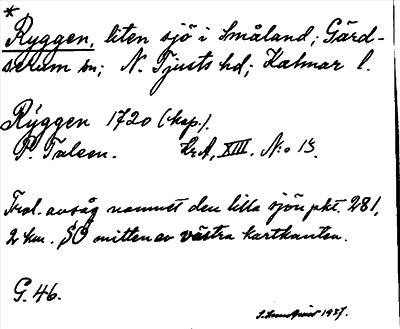 *
Ryggen, liten sjö i Småland; Gärd-
serum sn; N. Tjusts hd; Kalmar l.
Rÿggen 1720 (kop.).
P. Talsen. KrA, XIII. N:o 13.
Trol. avsåg namnet den lilla sjön pkt. 281,
2 km. SO mitten av västra kartkanten.
G. 46.
1937.